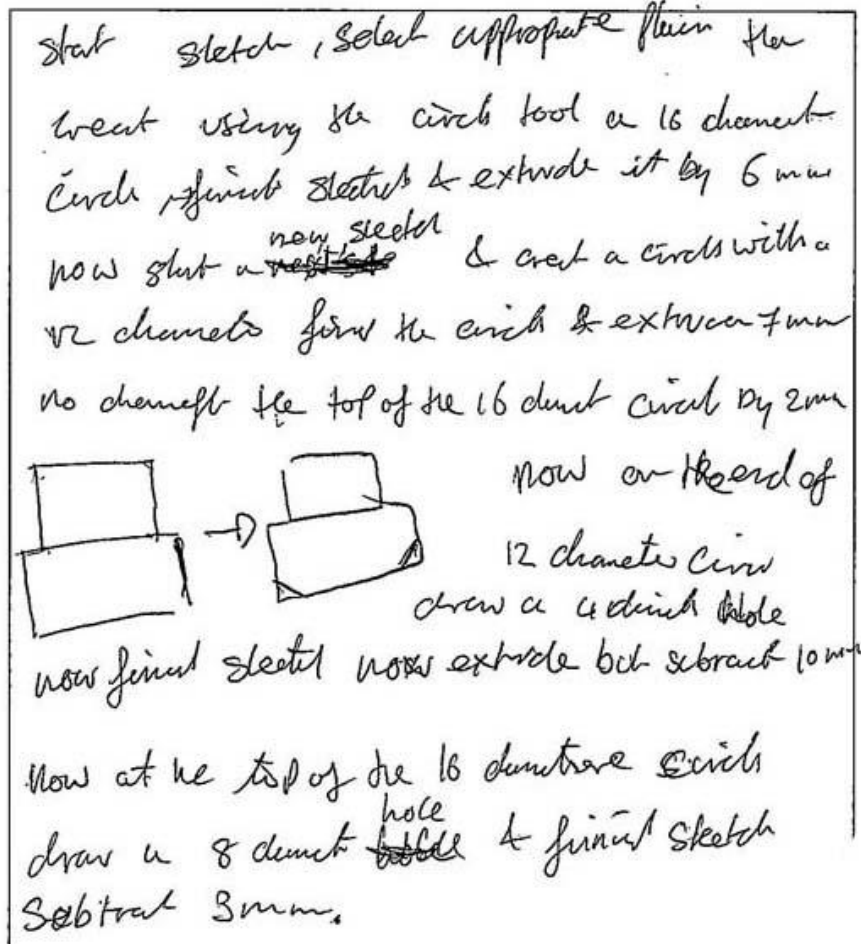 start sketch, select appropate plain the
creat using the circle tool a 16 diament
circle, finish sketch & extrude it by 6 mm
now start a new sketch & creat a circle with a
12 diameter finis the circle & extrude 7 mm
no chameft the top of the 16 dimet circel by 2mm
now on the end of
12 diameter circe
draw a hole
now finish sketch now extrude but subract 10 mm
now at he top of the 16 circle
draw a 8 hole & finish sketch
Subtrat 3mm.